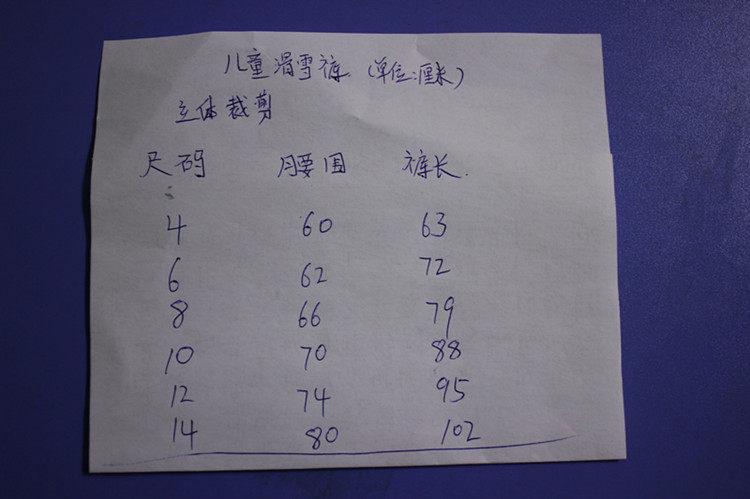 儿童滑雪裤 (单位:厘米)
立体裁剪
尺码 腰围 裤长
4 60 63
6 62 72
8 66 79
10 70 88
12 74 95
14 80 102